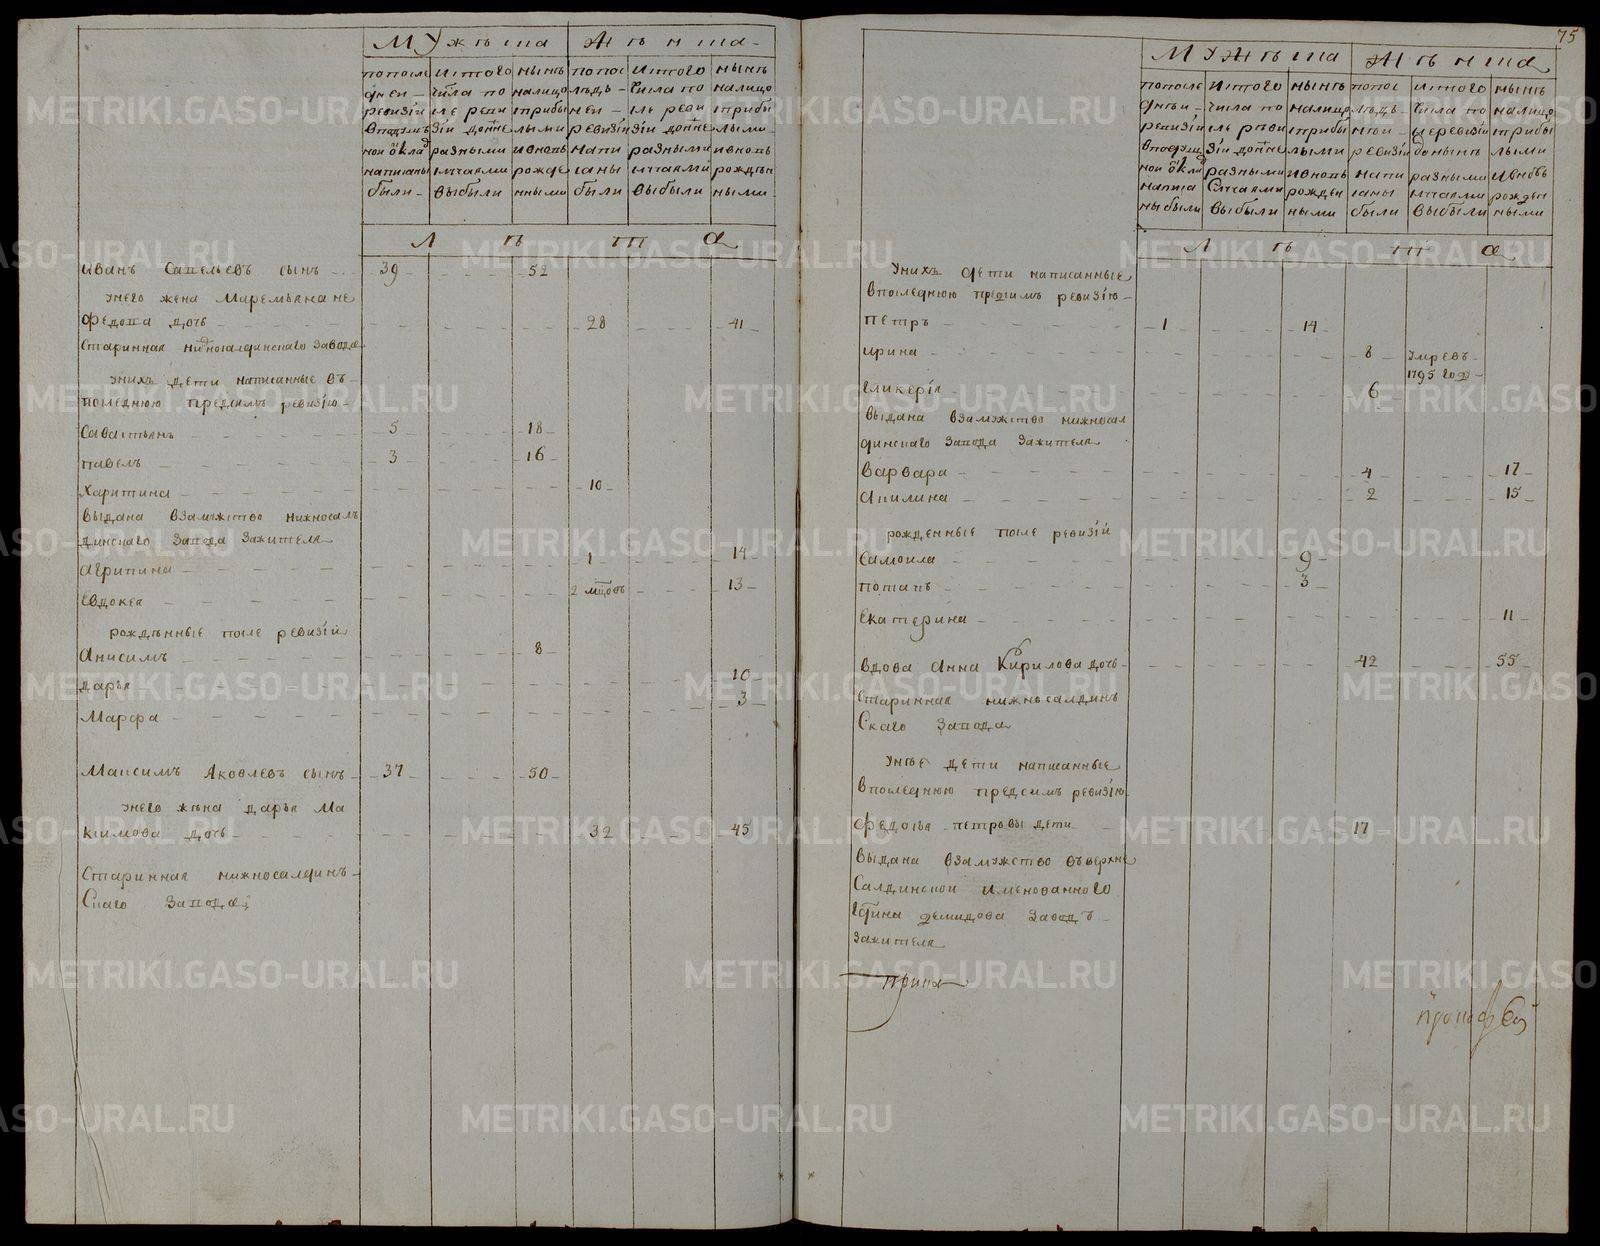 Мужеска Женска
по последней ревизіи в подушной окладъ написаны были
Изтого числа после ревизіи до ныне разными случаями выбыли
ныне налицо с прибылыми и вновь рожденными
по последней ревизіи написаны были
Изтого числа после ревизіи доныне разными случаями выбыли
ныне налицо с прибылыми и вновь рожденными
Л ѣ т а
Иванъ Савельевъ сынъ 39 52
унего жена Маремьяна не
федова дочь 28 41
Старинная нижносалдинскаго завода
унихъ дети написанные въ
последнюю предсимъ ревизію
Савастьянъ 5 18
павелъ 3 16
Харитина 10
выдана взамужство нижносал
динскаго завода зажителя
агрипина 1 14
Евдокея 2 мцовъ 13
рожденные после ревизіи
Анисимъ 8
дарья 10
Марфа 3
Максимъ Яковлевъ сынъ 37 50
унего жена дарья Ма
ксимова дочь 32 45
Старинная нижносалдинъ
Скаго завода
75
Мужеска Женска
по последней ревизіи в подушной окладъ написаны были
Изтого числа после ревизіи доныне разными Случаями выбыли
ныне налицо с прибылыми и вновь рожденными
по последней ревизіи написаны были
Изтого числа после ревизіи доныне разными случаями выбыли
ныне налицо с прибылыми И вновь рожденными
Л ѣ т а
Унихъ дети написанные
в последнюю предсимъ ревизію
Петръ 1 14
ирина 8 умре въ
1795 году
гликерія 6
выдана взамужство нижносал
динскаго завода зажителя
варвара 4 17
акилина 2 15
рожденные после ревизіи
Самоила 9
потапъ 3
екатерина 11
вдова анна Кирилова дочь 42 55
Старинная нижносалдинъ
Скаго завода
Унее дети написанные
в последнюю предсимъ ревизію
федосья петровы дети 17
выдана взамужство въверхне
Салдинской именованного
гдина демидова заводъ
зажителя
METRIKI.GASO-URAL.RU